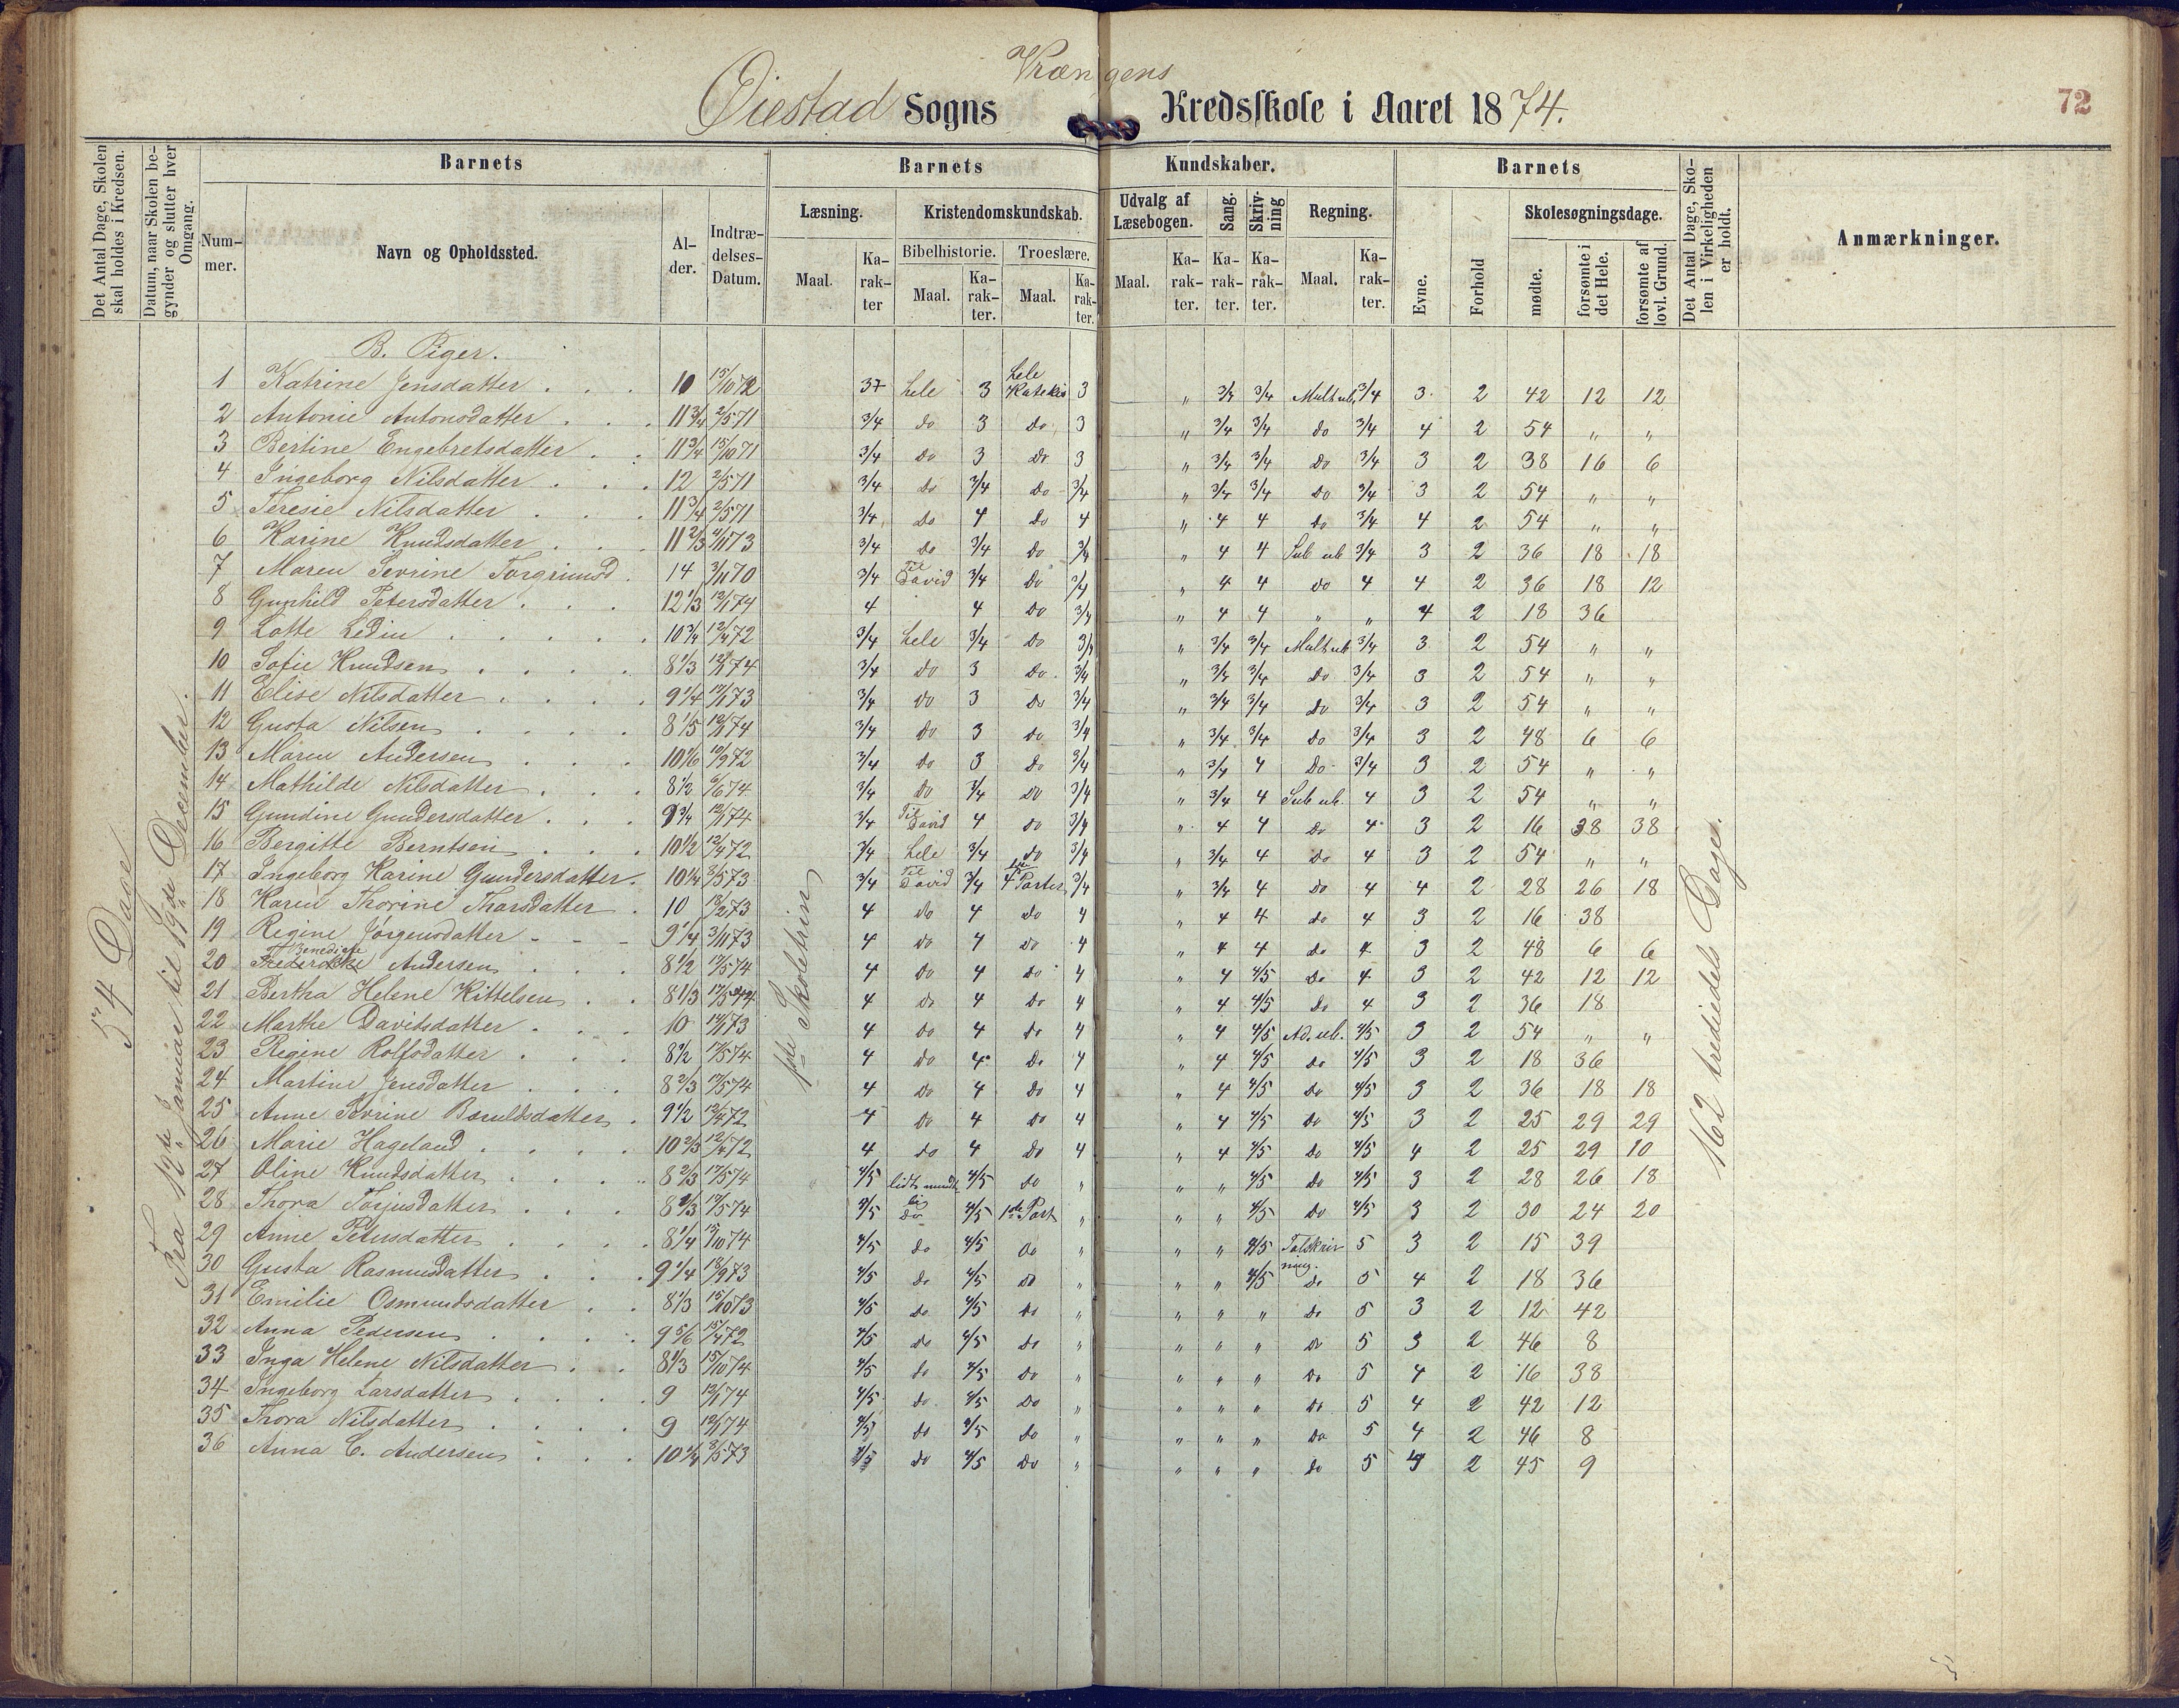 Vrængens
Øiestad Sogns Kredsskole i Aaret 1874.
72
Det Antal Dage, Skolen skal holdes i Kredsen.
Datum, naar Skolen begynder og slutter hver Omgang.
Barnets
Barnets
Kundskaber.
Barnets
Det Antal Dage, Skolen i Virkeligheden er holdt.
Anmærkninger.
Nummer.
Navn og Opholdssted.
Alder.
Indtrædelses-Datum.
Læsning.
Kristendomskundskab.
Udvalg af Læsebogen.
Sang.
Skrivning
Regning.
Evne.
Forhold
Skolesøgningsdage.
Maal.
Karakter
Bibelhistorie.
Troeslære.
Maal.
Karakter.
Maal.
Karakter.
Maal.
Karakter.
Karakter.
Karakter.
Maal.
Karakter.
mødte.
forsømte i det Hele.
forsømte af lovl. Grund.
54 Dage
Fra 12te Januar til 19de December.
162 trediedels Dage.
B. Piger.
1 Katrine Jensdatter 10 15/10 72 hele 3 hele Katekis 3 " 3/4 3/4 Mult ub. 3/4 3 2 42 12 12
2 Antonie Antonsdatter 11 3/4 2/5 71 3/4 do 3 do 3 " 3/4 3/4 do 3/4 4 2 54 " "
3 Bertine Engebretsdatter 11 3/4 15/10 71 3/4 do 3 do 3 " 3/4 3/4 do 3/4 3 2 38 16 6
4 Ingeborg Nilsdatter 12 2/5 71 3/4 do 3/4 do 3/4 " 3/4 3/4 do 3/4 3 2 54 " "
5 Teresie Nilsdatter 11 3/4 2/5 71 3/4 do 4 do 4 " 4 4 do 3/4 4 2 54 " "
6 Karine Knudsdatter 11 2/3 73 3/4 do 3/4 do 3/4 " 4 4 Sub ub 3/4 3 2 36 18 18
7 Maren Sevrine Torgrimsd. 14 3/11 70 3/4 Til David 3/4 do 3/4 " 4 4 do 4 4 2 36 18 12
8 Gunhild Petersdatter 12 1/3 12/1 74 4 4 do 3/4 " 4 4 " " 4 2 18 36
9 Lotte Ledin 10 3/4 12/4 72 3/4 hele 3/4 do 3/4 " 3/4 3/4 Mult ub 3/4 3 2 54 " "
10 Sofie Knudsen 8 1/3 12/1 74 3/4 do 3 do 3/4 " 3/4 3/4 do 3/4 3 2 54 " "
11 Elise Nilsdatter 9 1/4 73 3/4 do 3 do 3/4 " 3/4 3/4 do 3/4 3 2 54 " "
12 Gusta Nilsen 8 1/5 12/1 74 3/4 do 3 do 3/4 " 3/4 3/4 do 3/4 3 2 48 6 6
13 Maren Andersen 10 1/6 72 3/4 do 3 do 3/4 " 3/4 4 do 3/4 3 2 54 " "
14 Mathilde Nilsdatter 8 1/2 74 3/4 do 3/4 do 3/4 " 3/4 4 Sub ub. 4 3 2 54 " "
15 Gundine Gundersdatter 9 3/4 12/1 74 3/4 Til David 4 do 3/4 " 4 4 do 4 3 2 16 38 38
16 Bergitte Berntsen 10 1/2 12/4 72 3/4 hele 3/4 do 3/4 " 3/4 4 do 4 3 2 54 " "
17 Ingeborg Karine Gundersdatter 10 1/4 73 3/4 Til David 3/4 4 Parter 3/4 " 3/4 4 do 4 4 2 28 26 18
18 Karen Thorine Thorsdatter 10 73 4 do 4 do 4 " 4 4 do 4 3 2 16 38
19 Regine Jørgensdatter 9 1/4 3/11 73 4 do 4 do 4 " 4 4 do 4 3 2 48 6 6
20 Benedicte Andersen 8 1/2 74 4 do 4 do 4 " 4 4/5 do 4 3 2 42 12 12
21 Bertha Helene Kittelsen 8 1/3 74 4 do 4 do 4 " 4 4/5 do 4 3 2 36 18
22 Marthe Davidsdatter 10 73 4 do 4 do 4 " 4 4/5 Ad. ub. 4/5 3 2 54 " "
23 Regine Rolfsdatter 8 1/2 74 4 do 4 do 4 " 4 4/5 do 4/5 3 2 18 36
24 Martine Jensdatter 8 2/3 74 4 do 4 do 4 " 4 4/5 do 4/5 3 2 36 18 18
25 Anne Sevrine 9 1/2 12/4 72 4 do 4 do 4 " 4 4/5 do 4/5 3 2 25 29 29
26 Marie Hageland 10 2/3 12/4 72 4 do 4 do 4 " 4 4/5 do 4/5 4 2 25 29 10
27 Oline Knudsdatter 8 2/3 74 4/5 lidt mundt 4/5 do " " " 4/5 do 4/5 3 2 28 26 18
28 Thora Torjusdatter 8 2/3 74 4/5 do 4/5 1ste Part " " " 4/5 do 4/5 3 2 30 24 20
29 Anne Petersdatter 8 1/4 74 4/5 do 4/5 do " " " 4/5 Talskrivning. 5 3 2 15 39
30 Gusta Rasmusdatter 9 1/4 73 4/5 do 4/5 do " " " 4/5 do 5 4 2 18 36
31 Emilie Osmundsdatter 8 1/3 15/10 73 4/5 do 4/5 do " " " " do 5 3 2 12 42
32 Anna Pedersen 9 5/6 72 4/5 do 4/5 do " " " " do 5 3 2 46 8
33 Inga Helene Nilsdatter 8 1/3 15/10 74 4/5 do 4/5 do " " " " do 5 4 2 16 38
34 Ingeborg Larsdatter 9 12/1 74 4/5 do 4/5 do " " " " do 5 4 2 42 12
35 Thora Nilsdatter 9 12/1 74 4/5 do 4/5 do " " " " do 5 4 2 46 8
36 Anna C. Andersen 10 1/4 73 4/5 do 4/5 do " " " " do 5 4 2 45 9